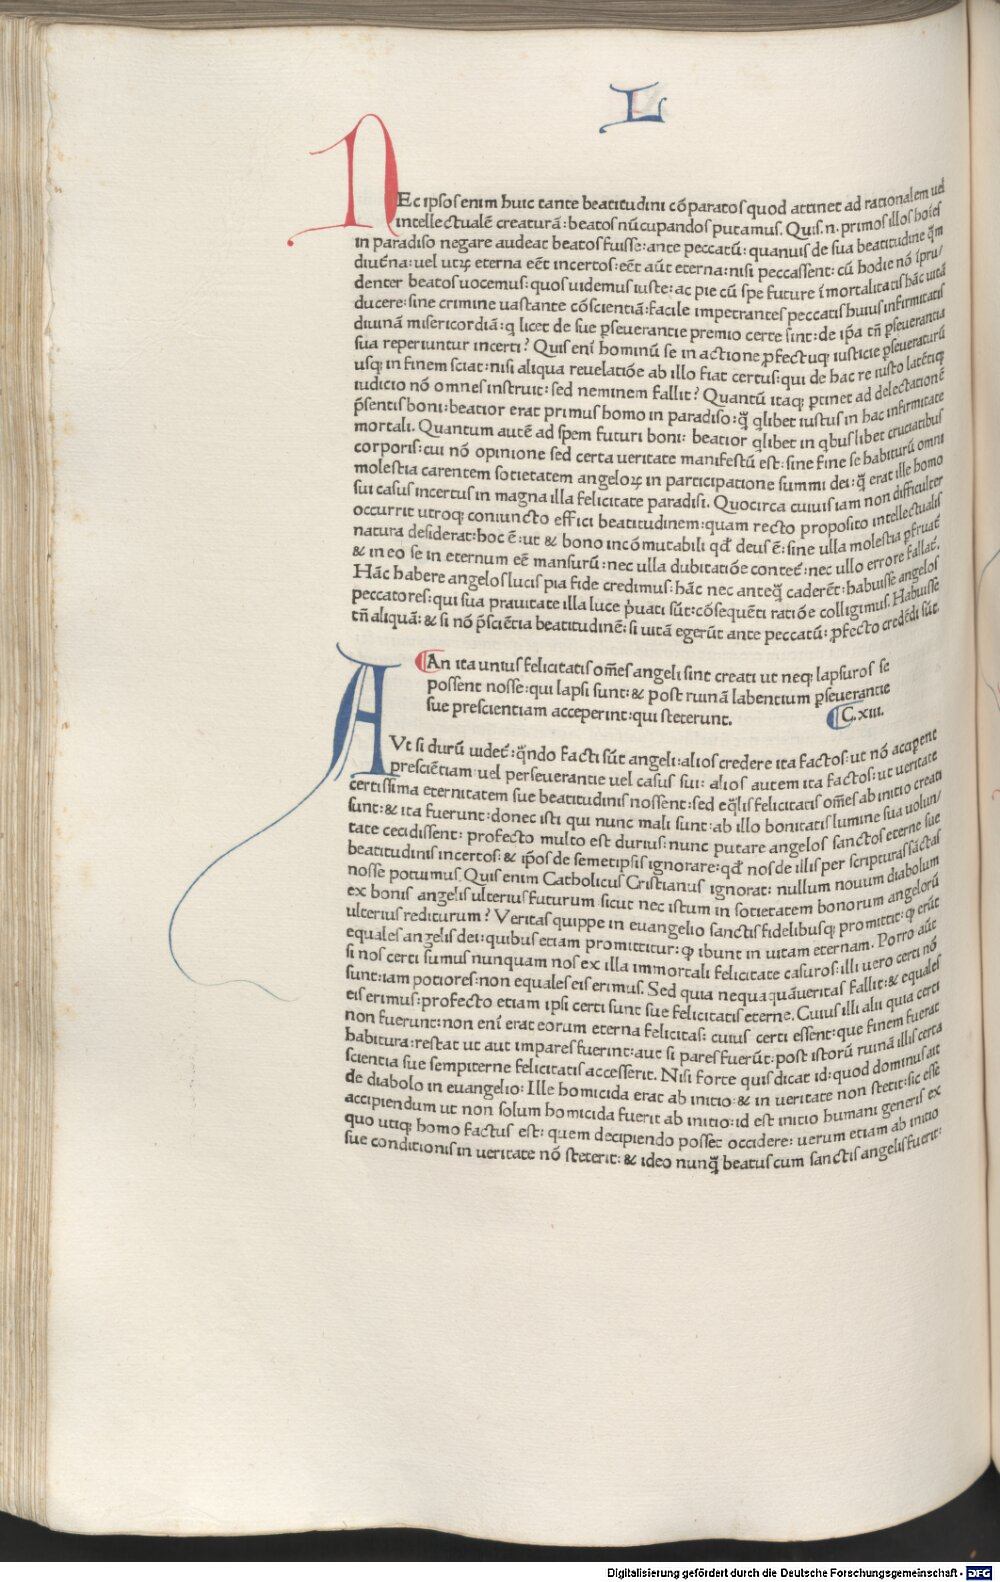 L
NEc ipsos enim huic tante beatitudini cōparatos quod attinet ad rationalem uel
intellectualē creaturā: beatos nūcupandos putamus. Quis .n. primos illos hoīes
in paradiso negare audeat beatos fuisse: ante peccatū: quanuis de sua beatitudine q̄m
diuturna: uel utrꝝ eterna eēt incertos: eēt aūt eterna: nisi peccassent: cū hodie nō īpru/
denter beatos uocemus: quos uidemus iuste: ac pie cū spe future īmortalitatis hāc uitā
ducere: sine crimine uastante cōscientiā: facile impetrantes peccatis huius infirmitatis
diuinā misericordiā: q licet de sue ꝑseuerantie premio certe sint: de ip̄a tn̄ ꝑseuerantia
sua reperiuntur incerti? Quis enī hominū se in actione ꝓfectuqꝫ iusticie ꝑseueraturū
usqꝫ in finem sciat: nisi aliqua reuelatiōe ab illo fiat certus: qui de hac re iusto latētiqꝫ
iudicio nō omnes instruit: sed neminem fallit? Quantū itaqꝫ ꝑtinet ad delectationē
p̄sentis boni: beatior erat primus homo in paradiso: q̄ qlibet iustus in hac infirmitate
mortali. Quantum autē ad spem futuri boni: beatior qlibet in qbus libet cruciatibus
corporis: cui nō opinione sed certa ueritate manifestū est: sine fine se habiturū omni
molestia carentem societatem angeloꝝ in participatione summi dei: q̄ erat ille homo
sui casus incertus in magna illa felicitate paradisi. Quocirca cuiuis iam non difficulter
occurrit utroqꝫ coniuncto effici beatitudinem: quam recto proposito intellectualis
natura desiderat: hoc ē: ut & bono incōmutabili qd̄ deus ē: sine ulla molestia ꝑfruat̄
& in eo se in eternum eē mansurū: nec ulla dubitatiōe contet̄: nec ullo errore fallat̄.
Hāc habere angelos lucis pia fide credimus: hāc nec anteq̄ caderēt: habuisse angelos
peccatores: qui sua prauitate illa luce p̄uati sūt: cōsequēti ratiōe colligimus. Habuisse
tn̄ aliquā: & si nō p̄sciētia beatitudinē: si uitā egerūt ante peccatū: ꝓfecto credēdi sūt.
An ita unius felicitatis om̄es angeli sint creati ut neqꝫ lapsuros se
possent nosse: qui lapsi sunt: & post ruinā labentium ꝑseuerantie
sue prescientiam acceperint: qui steterunt. C. xiii.
AUt si durū uidet̄: q̄ndo facti sūt angeli: alios credere ita factos: ut nō acciperent
presciētiam uel perseuerantie uel casus sui: alios autem ita factos: ut ueritate
certissima eternitatem sue beatitudinis nossent: sed eq̄lis felicitatis om̄es ab initio creati
sunt: & ita fuerunt: donec isti qui nunc mali sunt: ab illo bonitatis lumine sua uolun/
tate cecidissent: profecto multo est durius: nunc putare angelos sanctos eterne sue
beatitudinis incertos: & ip̄os de semetipsis ignorare: qd̄ nos de illis per scripturas sāctas
nosse potuimus. Quis enim Catholicus Cristianus ignorat: nullum nouum diabolum
ex bonis angelis ulterius futurum sicut nec istum in societatem bonorum angelorū
ulterius rediturum? Veritas quippe in euangelio sanctis fidelibusqꝫ promittit: ꝙ erūt
equales angelis dei: quibus etiam promittitur: ꝙ ibunt in uitam eternam. Porro aūt
si nos certi sumus nunquam nos ex illa immortali felicitate casuros: illi uero certi nō
sunt: iam potiores: non equales eis erimus. Sed quia nequaquā ueritas fallit: & equales
eis erimus: profecto etiam ipsi certi sunt sue felicitatis eterne. Cuius illi alii quia certi
non fuerunt: non enī erat eorum eterna felicitas: cuius certi essent: que finem fuerat
habitura: restat ut aut impares fuerint: aut si pares fuerūt: post istorū ruinā illis certa
scientia sue sempiterne felicitatis accesserit. Nisi forte quis dicat id: quod dominus ait
de diabolo in euangelio: Ille homicida erat ab initio: & in ueritate non stetit: sic esse
accipiendum ut non solum homicida fuerit ab initio: id est initio humani generis ex
quo utiqꝫ homo factus est: quem decipiendo posset occidere: uerum etiam ab initio
sue conditionis in ueritate nō steterit: & ideo nunq̄ beatus cum sanctis angelis fuerit:
Digitalisierung gefördert durch die Deutsche Forschungsgemeinschaft - DFG